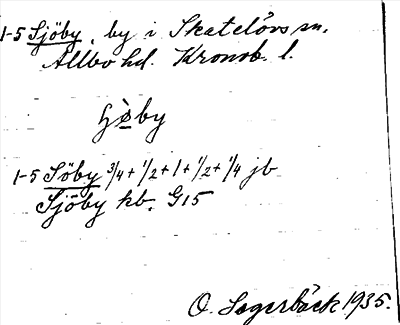 1-5 Sjöby, by i Skatelövs sn.
Allbo hd. Kronob. l.
by
1-5 Söby 3/4 + 1/2 + 1 + 1/2 + 1/4 jb
Sjöby kb. G15
O. Lagerbäck 1935.